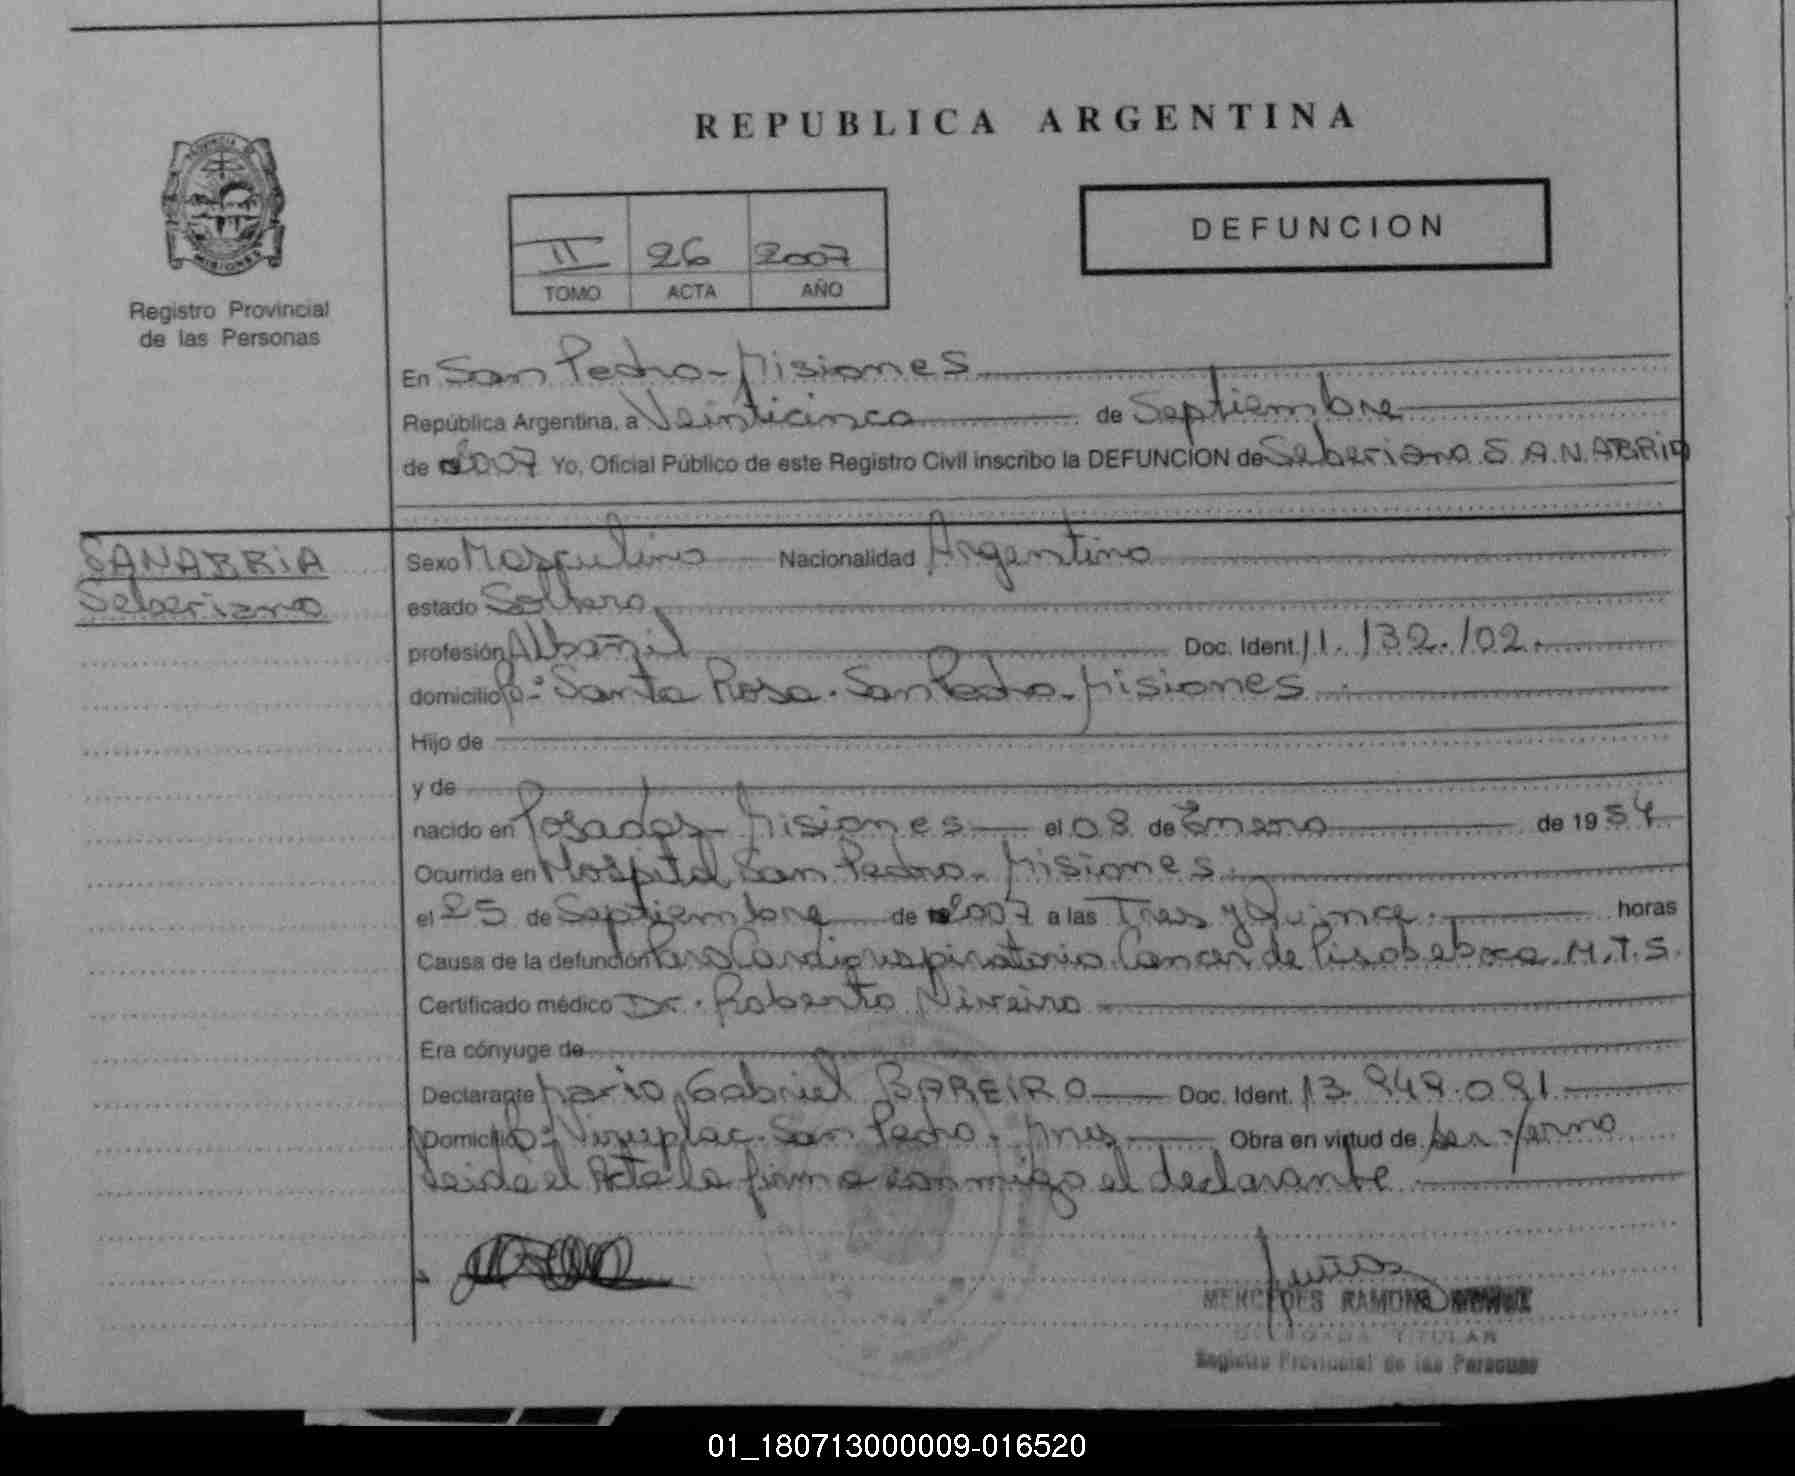 REPUBLICA ARGENTINA
DEFUNCION
II 26 2007
TOMO ACTA AÑO
MISIONES
Registro Provincial
de las Personas
En San Pedro - Misiones
República Argentina, a Veinticinco de Septiembre
de 2007 Yo, Oficial Público de este Registro Civil inscribo la DEFUNCION de Seberiano SANABRIA
SANABRIA
Seberiano
Sexo Masculino Nacionalidad Argentino
estado Soltero
profesión Albañil Doc. Ident. 11.132.102.
domicilio Bº: Santa Rosa. San Pedro - Misiones
Hijo de
y de
nacido en Posadas - Misiones el 08 de Enero de 1954
Ocurrida en Hospital San Pedro - Misiones.
el 25 de Septiembre de 2007 a las Tres y Quince. horas
Causa de la defunción Paro Cardiorespiratorio. Cancer de Piso de boca. M.T.S.
Certificado médico Dr. Roberto
Era cónyuge de
Declarante Mario Gabriel BAREIRO Doc. Ident. 13.949.091
Domicilio Bº: San Pedro. Mnes Obra en virtud de ser Yerno
Leida el Acta la firma conmigo el declarante
MERCEDES RAMONA
DELEGADA TITULAR
Registro Provincial de las Personas
01_180713000009-016520